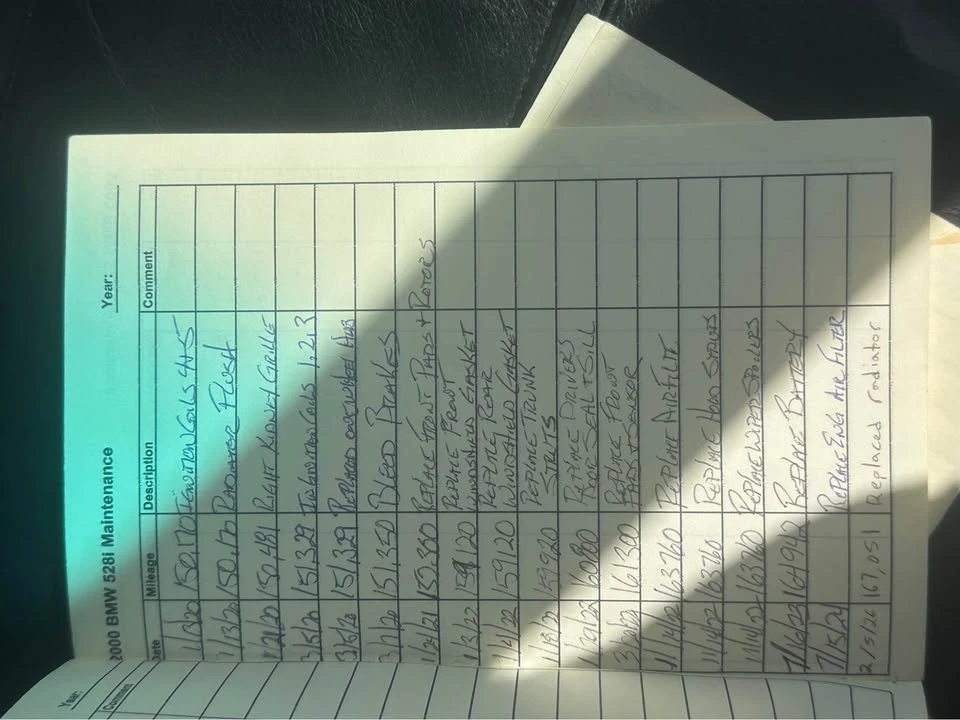 2000 BMW 528i Maintenance Year:
Date Mileage Description Comment
1/3/20 150,170 IGNITION COILS 4+5
1/3/20 150,170 RADIATOR FLUSH
1/21/20 150,481 RIGHT KIDNEY GRILLE
3/5/20 151,329 IGNITION COILS 1,2,3
3/5/20 151,329
3/7/20 151,350 BLEED BRAKES
REPLACE FRONT PADS + ROTORS
1/3/22 159,120 REPLACE FRONT
WINDSHIELD GASKET
1/4/22 159120 REPLACE REAR
WINDSHIELD GASKET
REPLACE TRUNK
STRUTS
REPLACE DRIVERS
DOOR SEAL + SILL
161300 REPLACE FRONT
11/14/22 163760 REPLACE AIR FILT
11/14/22 163760 REPLACE HOOD STRUTS
11/14/22 163760 REPLACE
7/6/23 164912 REPLACE BATTERY
7/15/24 REPLACE ENG AIR FILTER
2/5/26 167,051 Replaced radiator
Year:
Commen